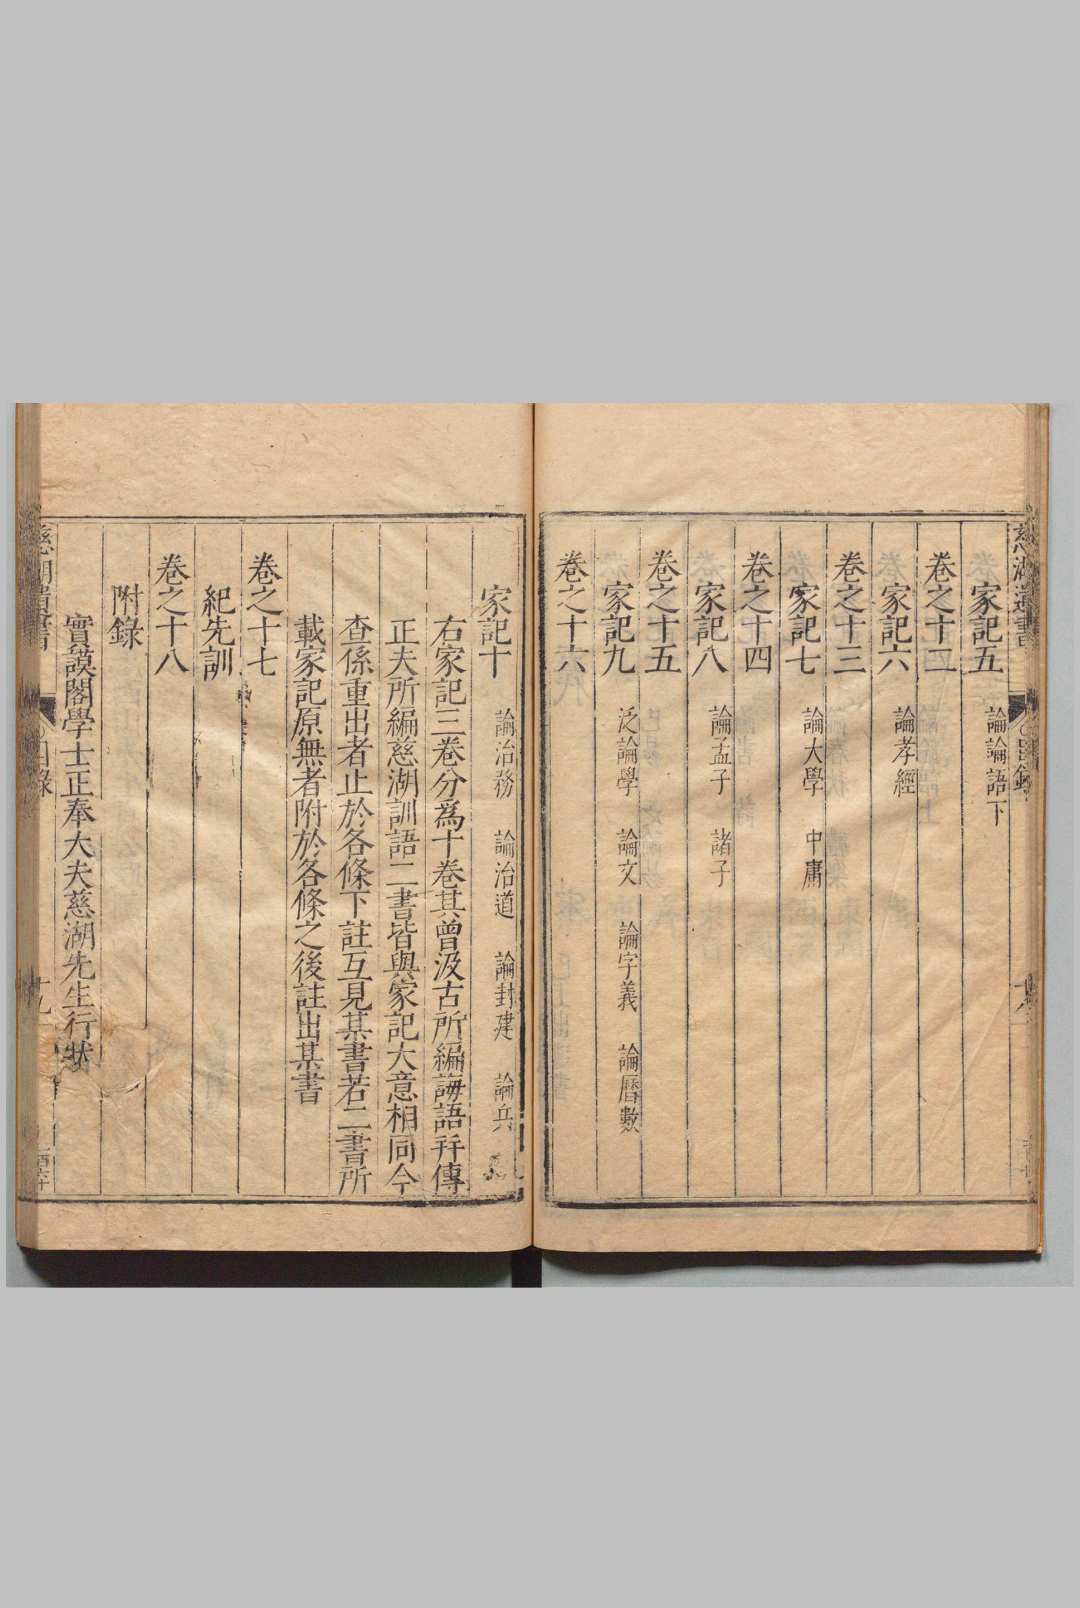 慈湖遺書
目錄
十八
家記五 論論語下
卷之十二
家記六 論孝經
卷之十三
家記七 論大學 中庸
卷之十四
家記八 論孟子 諸子
卷之十五
家記九 泛論學 論文 論字義 論曆數
卷之十六
家記十 論治務 論治道 論封建 論兵
右家記三卷分為十卷其曾汲古所編誨語幷傳
正夫所編慈湖訓語二書皆與家記大意相同今
查係重出者止於各條下註互見某書若二書所
載家記原無者附於各條之後註出某書
卷之十七
紀先訓
卷之十八
附錄
寶謨閣學士正奉大夫慈湖先生行狀
慈湖遺書
目錄
十九